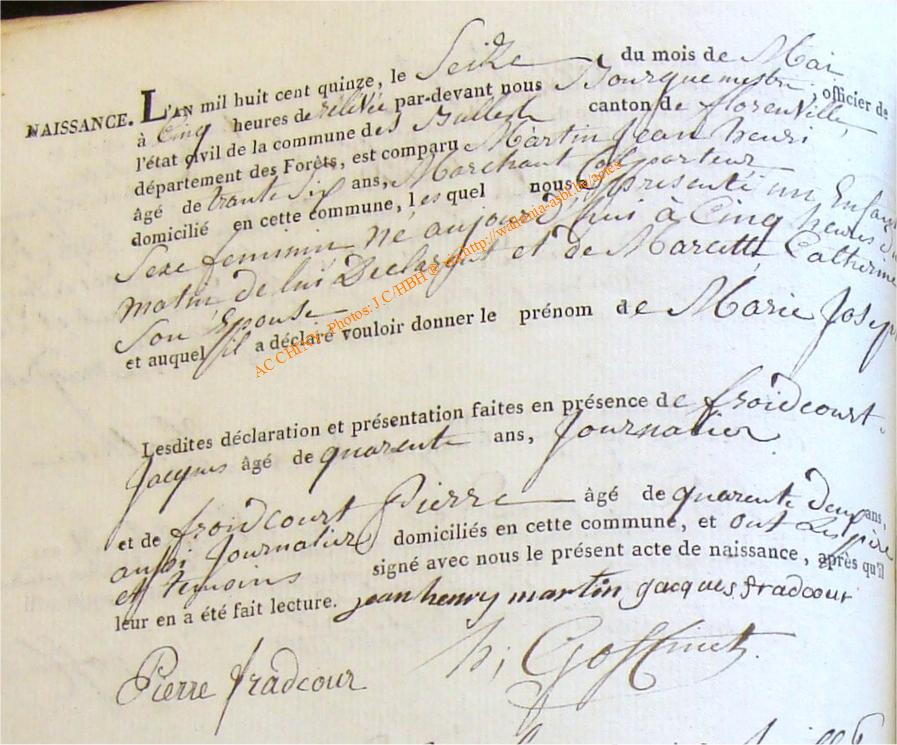 NAISSANCE. L'AN mil huit cent quinze, le Seize du mois de Mai
à Cinq heures de rélévée par-devant nous Bourguemestre, officier de
l'état civil de la commune des Bulles canton de florenville,
département des Forêts, est comparu Martin Jean henri
âgé de trante Six ans, Marchant Colporteur
domicilié en cette commune, lesquel nous a présenté un Enfant
Sexe feminin né aujourd'hui à Cinq heures du
matin, de lui Déclarant et de Marcette Catherine
Son Epouse
et auquel il a déclaré vouloir donner le prénom de Marie Josep
Lesdites déclaration et présentation faites en présence de froidcourt
Jacques âgé de quarente ans, Journalier
et de froidcourt Pierre âgé de quarente deux ans,
aussi Journalier domiciliés en cette commune, et ont Les père
et temoins signé avec nous le présent acte de naissance, après qu'il
leur en a été fait lecture. jean henry martin jacques fradcour
Pierre fradcour h; Goffinet.
ACCHPH Photos: J C/HBH
http://wahenia-asbl.be/actes